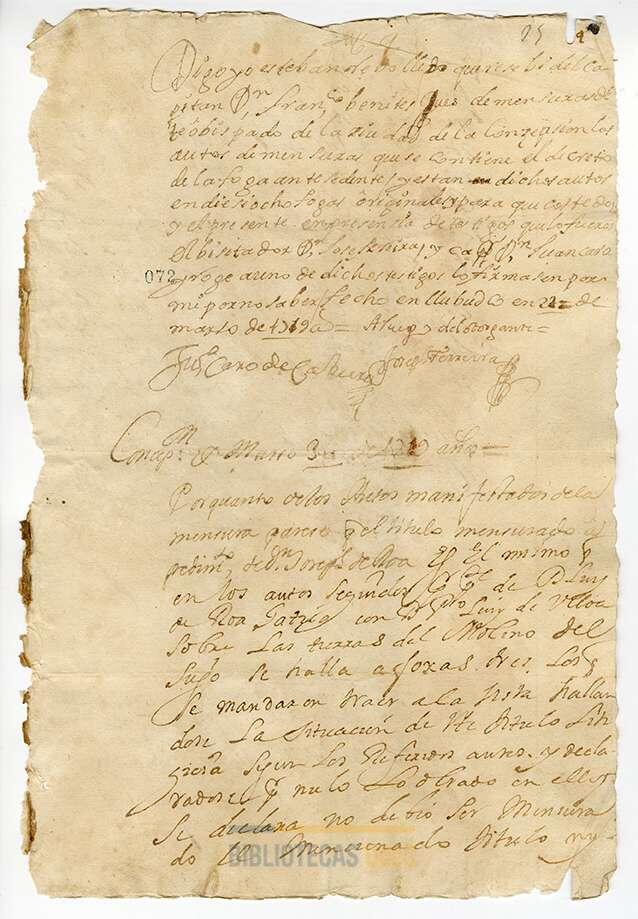 25
Digo yo esteban de bolludo que resebi del Ca
pitan Dn franco benites Jues de mensuras de
te obispado de la ziudad de la Conzepsion los
autos de mensuras que se contiene el decreto
de la foga antesedente y estan dichos autos
en diesiocho fogas originales y para que coste doy
y el presente en presensia de testigos que lo fueron
el bisitador Dn Jose ferreira y capn Dn Juan caro
072
y roge a uno de dichos testigos lo firmasen por
mi por no saber fecho en en 22 de
marso de 1719 as = A ruego del otorgante =
Jun Caro de Joseph Ferreira
Concepn y Marzo 3 de 1719 años =
Por quanto de los Autos manifestados de la
mensura parese q el titulo mensurado a
pedimto de Dn Joseph de Roa es el mismo q
en los autos seguidos por pte de D Luis
de Roa con Luis de Ulloa
sobre las tierras del Molino del
se halla a foxas tres los q
se mandaron traer a la vista hallan
dose la situacion de dte titulo liti
giosa segun los referidos autos y decla
radose por nulo lo obrado en ellos
se declara no debio ser mensura
do el mensionado titulo ny
BIBLIOTECAS